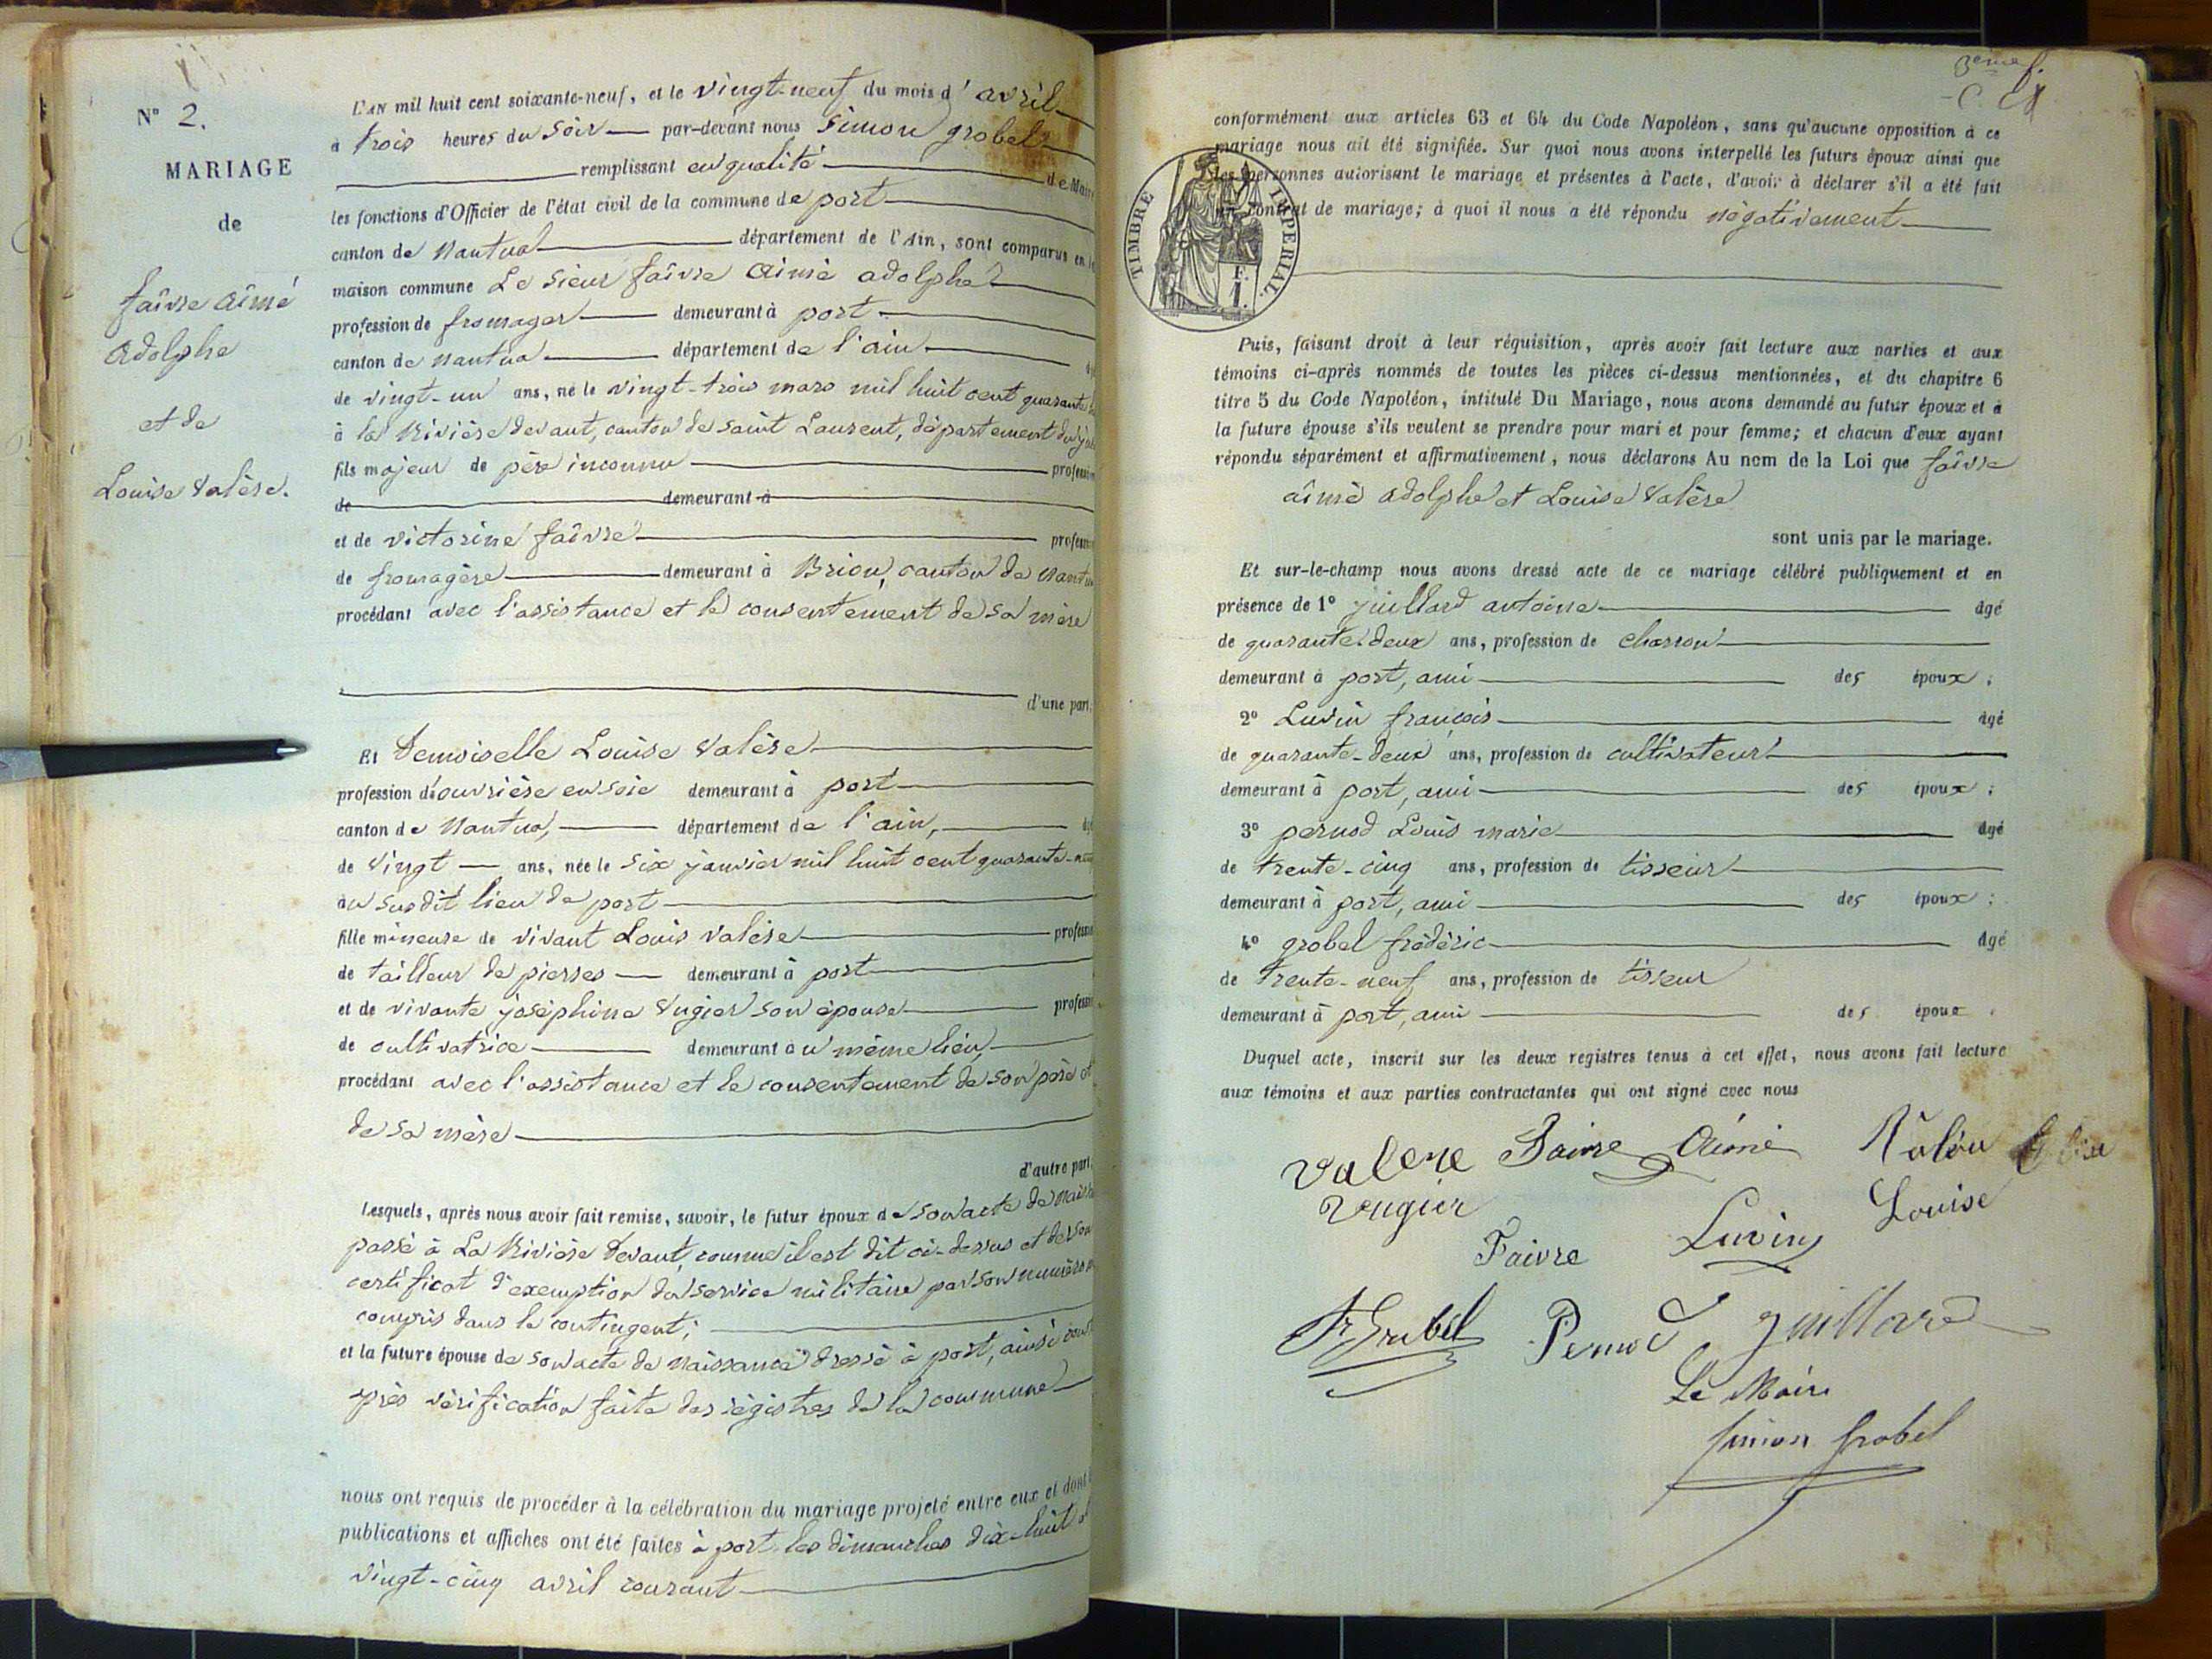 N° 2.
MARIAGE
de
faîvre aîmé
adolphe
et de
Louise Valère.
L'AN mil huit cent soixante-neuf, et le vingt-neuf du mois d'avril
à trois heures du soir par-devant nous Simon grobel
remplissant en qualité de Maire
les fonctions d'Officier de l'état civil de la commune de port
canton de Nantua département de l'Ain, sont comparus en
maison commune Le sieur faîvre aimé adolphe
profession de fromager demeurant à port
canton de nantua département de l'ain
de vingt-un ans, né le vingt-trois mars mil huit cent quarante
à la Rivière devant, canton de saint Laurent, département du
fils majeur de père inconnu profession
de demeurant à
et de victorine faîvre profession
de fromagère demeurant à Brion, canton de Nantua
procédant avec l'assistance et le consentement de sa mère
d'une part,
Et Demoiselle Louise Valère
profession d'ouvrière en soie demeurant à port
canton de Nantua, département de l'ain,
de vingt ans, née le six janvier mil huit cent quarante-
au susdit lieu de port
fille mineure de vivant Louis Valère profession
de tailleur de pierres demeurant à port
et de vivante joséphine Vugier son épouse profession
de cultivatrice demeurant au même lieu,
procédant avec l'assistance et le consentement de son père et
de sa mère
d'autre part.
Lesquels, après nous avoir fait remise, savoir, le futur époux de son acte de
passé à La Rivière Devant, comme il est dit ci-dessus et de son
certificat d'exemption du service militaire par son numéro
compris dans le contingent;
et la future épouse de son acte de naissance dressé à port, ainsi
près vérification faite des régistres de la commune
nous ont requis de procéder à la célébration du mariage projeté entre eux et dont
publications et affiches ont été faites à port les dimanches dix-huit et
vingt-cinq avril courant
3eme f.
conformément aux articles 63 et 64 du Code Napoléon, sans qu'aucune opposition à ce
mariage nous ait été signifiée. Sur quoi nous avons interpellé les futurs époux ainsi que
les personnes autorisant le mariage et présentes à l'acte, d'avoir à déclarer s'il a été fait
un contrat de mariage; à quoi il nous a été répondu négativement
TIMBRE IMPERIAL.
Puis, faisant droit à leur réquisition, après avoir fait lecture aux parties et aux
témoins ci-après nommés de toutes les pièces ci-dessus mentionnées, et du chapitre 6
titre 5 du Code Napoléon, intitulé Du Mariage, nous avons demandé au futur époux et à
la future épouse s'ils veulent se prendre pour mari et pour femme; et chacun d'eux ayant
répondu séparément et affirmativement, nous déclarons Au nom de la Loi que faîvre
aîmé adolphe et Louise Valère
sont unis par le mariage.
Et sur-le-champ nous avons dressé acte de ce mariage célébré publiquement et en
présence de 1° juillard antoine âgé
de quarante-deux ans, profession de charron
demeurant à port, ami des époux;
2° Luvin françois âgé
de quarante-deux ans, profession de cultivateur
demeurant à port, ami des époux;
3° pernod Louis marie âgé
de trente-cinq ans, profession de tisseur
demeurant à port, ami des époux;
4° grobel frédéric âgé
de trente-neuf ans, profession de tisseur
demeurant à port, ami des époux.
Duquel acte, inscrit sur les deux registres tenus à cet effet, nous avons fait lecture
aux témoins et aux parties contractantes qui ont signé avec nous
Valere Faivre Aimé
Vugier Louise
Faivre Luvin
Fr Grobel Pernod Juillard
Le Maire
Simon Grobel